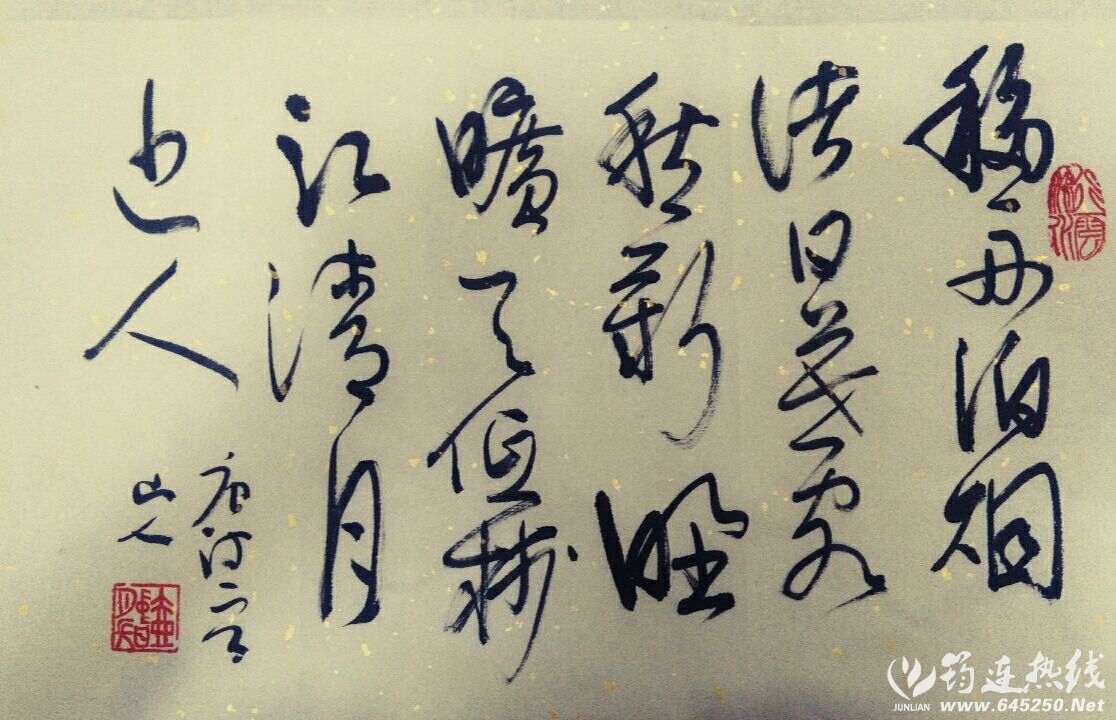 移舟泊烟
渚日暮客
愁新野
曠天低樹
江清月
近人
山人
筠连热线
JUNLIAN www.645250.Net